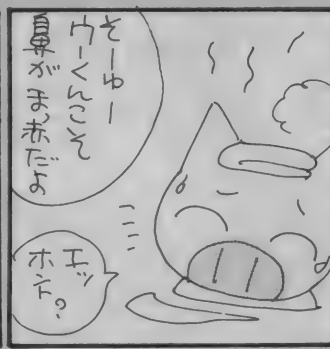 そーゆー
ウーくんこそ
鼻がまっ赤だよ
エッ
ホント?